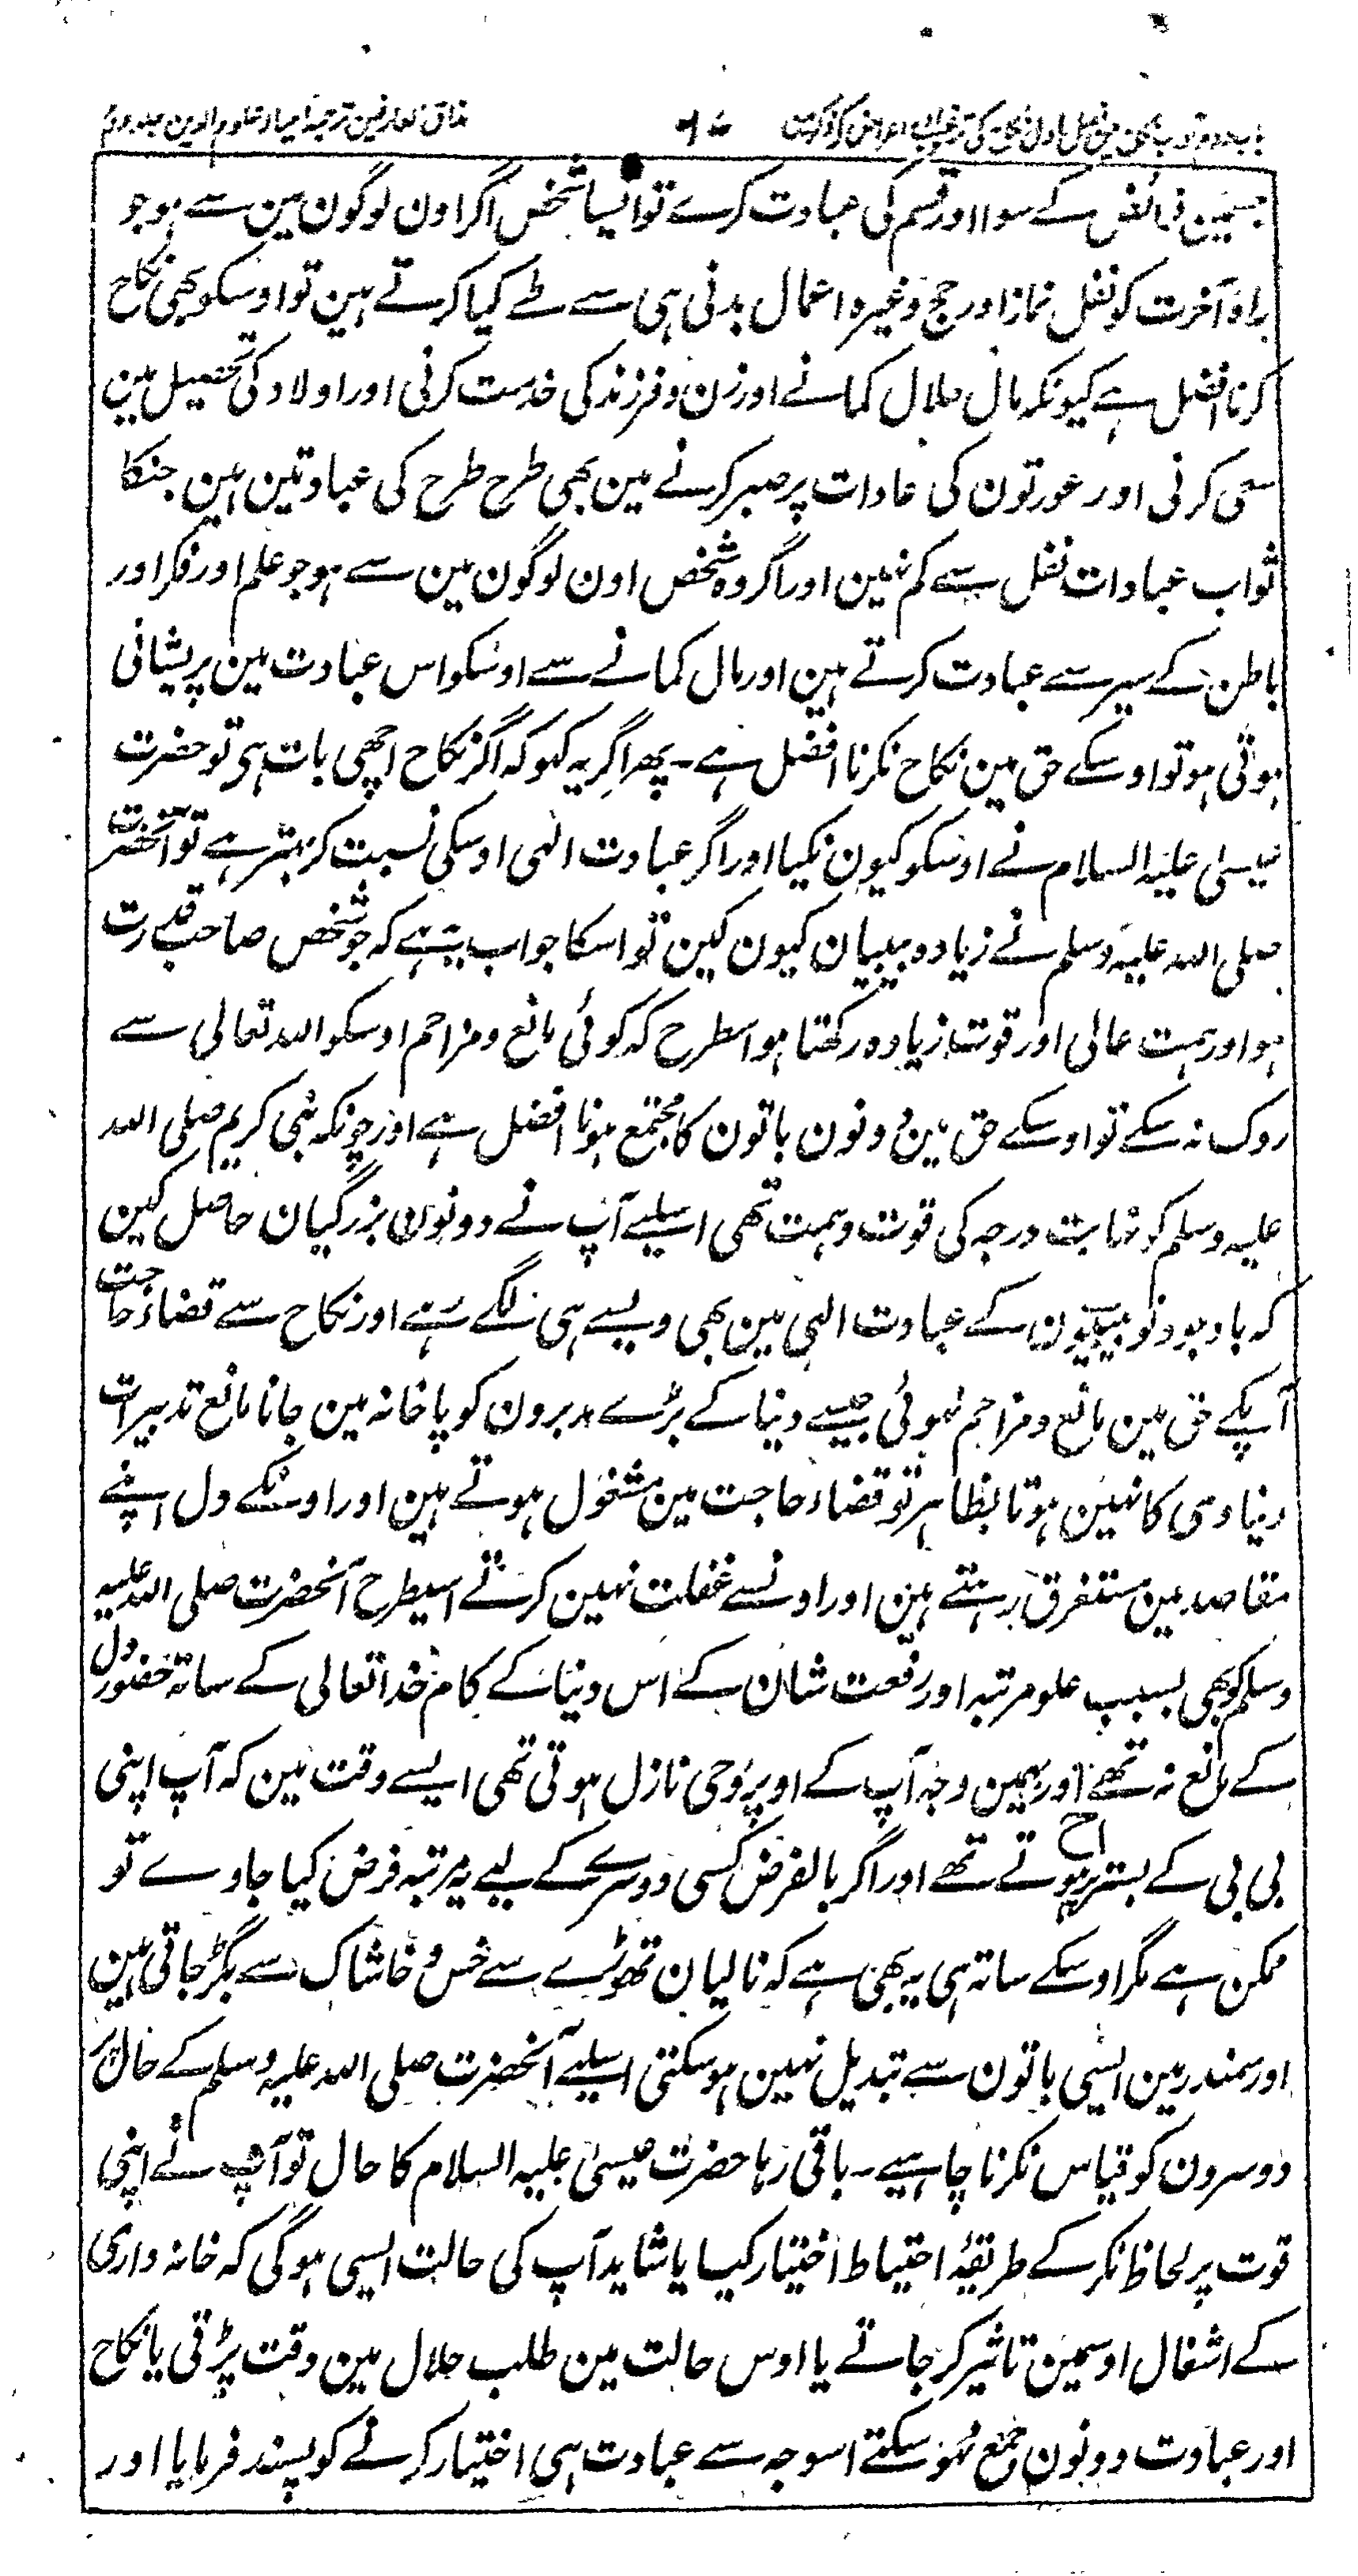 مذاق العارفین ترجمۂ احیاء علوم الدین جلد دوم
جسمین فرائض کے سوا اور قسم کی عبادت کرے تو ایسا شخص اگر اون لوگون مین سے ہو جو
راہ آخرت کو نفل نماز اور حج وغیرہ اعمال بدنی ہی سے طے کیا کرتے ہین تو اوسکو بھی نکاح
کرنا افضل ہے کیونکہ مال حلال کمانے اور زن و فرزند کی خدمت کرنی اور اولاد کی تحصیل مین
سعی کرنی اور عورتون کی عادات پر صبر کرنے مین بھی طرح طرح کی عبادتین ہین جنکا
ثواب عبادات نفل سے کم نہین اور اگر وہ شخص اون لوگون مین سے ہو جو علم اور فکر اور
باطن کے سیر سے عبادت کرتے ہین اور مال کمانے سے اوسکو اس عبادت مین پریشانی
ہوتی ہو تو اوسکے حق مین نکاح نکرنا افضل ہے۔ پھر اگر یہ کہو کہ اگر نکاح اچھی بات ہی تو حضرت
عیسیٰ علیہ السلام نے اوسکو کیون نکیا اور اگر عبادت الٰہی اوسکی نسبت کر بہتر ہے تو آنحضرت
صلی اللہ علیہ وسلم نے زیادہ بیبیان کیون کین تو اسکا جواب یہ ہے کہ جو شخص صاحب قدرت
ہو اور ہمت عالی اور قوت زیادہ رکھتا ہو اسطرح کہ کوئی مانع و مزاحم اوسکو اللہ تعالی سے
روک نہ سکے تو اوسکے حق مین دونون باتون کا مجتمع ہونا افضل ہے اور چونکہ نبی کریم صلی اللہ
علیہ وسلم کو نہایت درجہ کی قوت و ہمت تھی اسلیے آپ نے دونون بزرگیان حاصل کین
کہ باوجود نو بیبیون کے عبادت الٰہی مین بھی ویسے ہی لگے رہے اور نکاح سے قضاء حاجت
آپکے حق مین مانع و مزاحم نہوئی جیسے دنیا کے بڑے مدبرون کو پاخانہ مین جانا مانع تدبیرات
دنیاوی کا نہین ہوتا بظاہر تو قضاء حاجت مین مشغول ہوتے ہین اور اونکے دل اپنے
مقاصد مین مستغرق رہتے ہین اور اونسے غفلت نہین کرتے اسیطرح آنحضرت صلی اللہ علیہ
وسلم کو بھی بسبب علو مرتبہ اور رفعت شان کے اس دنیا کے کام خدا تعالی کے ساتہ حضور دل
کے مانع نہ تھے اور بہمین وجہ آپ کے اوپر وحی نازل ہوتی تھی ایسے وقت مین کہ آپ اپنی
بی بی کے بستر پر ہوتے تھے اور اگر بالفرض کسی دوسرے کے لیے یہ مرتبہ فرض کیا جاوے تو
ممکن ہے مگر اوسکے ساتہ ہی یہ بھی ہے کہ نالیان تھوڑے سے خس و خاشاک سے بگڑ جاتی ہین
اور سمندر مین ایسی باتون سے تبدیل نہین ہو سکتی اسلیے آنحضرت صلی اللہ علیہ وسلم کے حال پر
دوسرون کو قیاس نکرنا چاہیے۔ باقی رہا حضرت عیسیٰ علیہ السلام کا حال تو آپ نے اپنی
قوت پر لحاظ نکر کے طریقۂ احتیاط اختیار کیا یا شاید آپ کی حالت ایسی ہوگی کہ خانہ داری
کے اشغال اوسمین تاثیر کر جاتے یا اوس حالت مین طلب حلال مین وقت پڑتی یا نکاح
اور عبادت دونون جمع نہو سکتے اسوجہ سے عبادت ہی اختیار کرنے کو پسند فرمایا اور